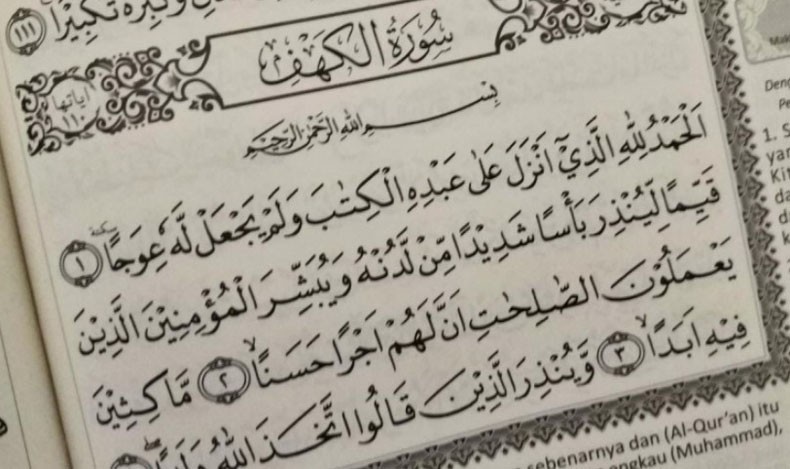 وَكَبِّرْهُ تَكْبِيْرًا ࣖ ١١١
سُورَةُ الْكَهْفِ
اٰياتها ١١٠
بِسْمِ اللّٰهِ الرَّحْمٰنِ الرَّحِيْمِ
اَلْحَمْدُ لِلّٰهِ الَّذِيْٓ اَنْزَلَ عَلٰى عَبْدِهِ الْكِتٰبَ وَلَمْ يَجْعَلْ لَّهٗ عِوَجًا ۜ ١
قَيِّمًا لِّيُنْذِرَ بَأْسًا شَدِيْدًا مِّنْ لَّدُنْهُ وَيُبَشِّرَ الْمُؤْمِنِيْنَ الَّذِيْنَ
يَعْمَلُوْنَ الصّٰلِحٰتِ اَنَّ لَهُمْ اَجْرًا حَسَنًاۙ ٢ مَّاكِثِيْنَ
فِيْهِ اَبَدًاۙ ٣ وَّيُنْذِرَ الَّذِيْنَ قَالُوا اتَّخَذَ اللّٰهُ وَلَدًا
1. S
sebenarnya dan (Al-Qur'an) itu
engkau (Muhammad),